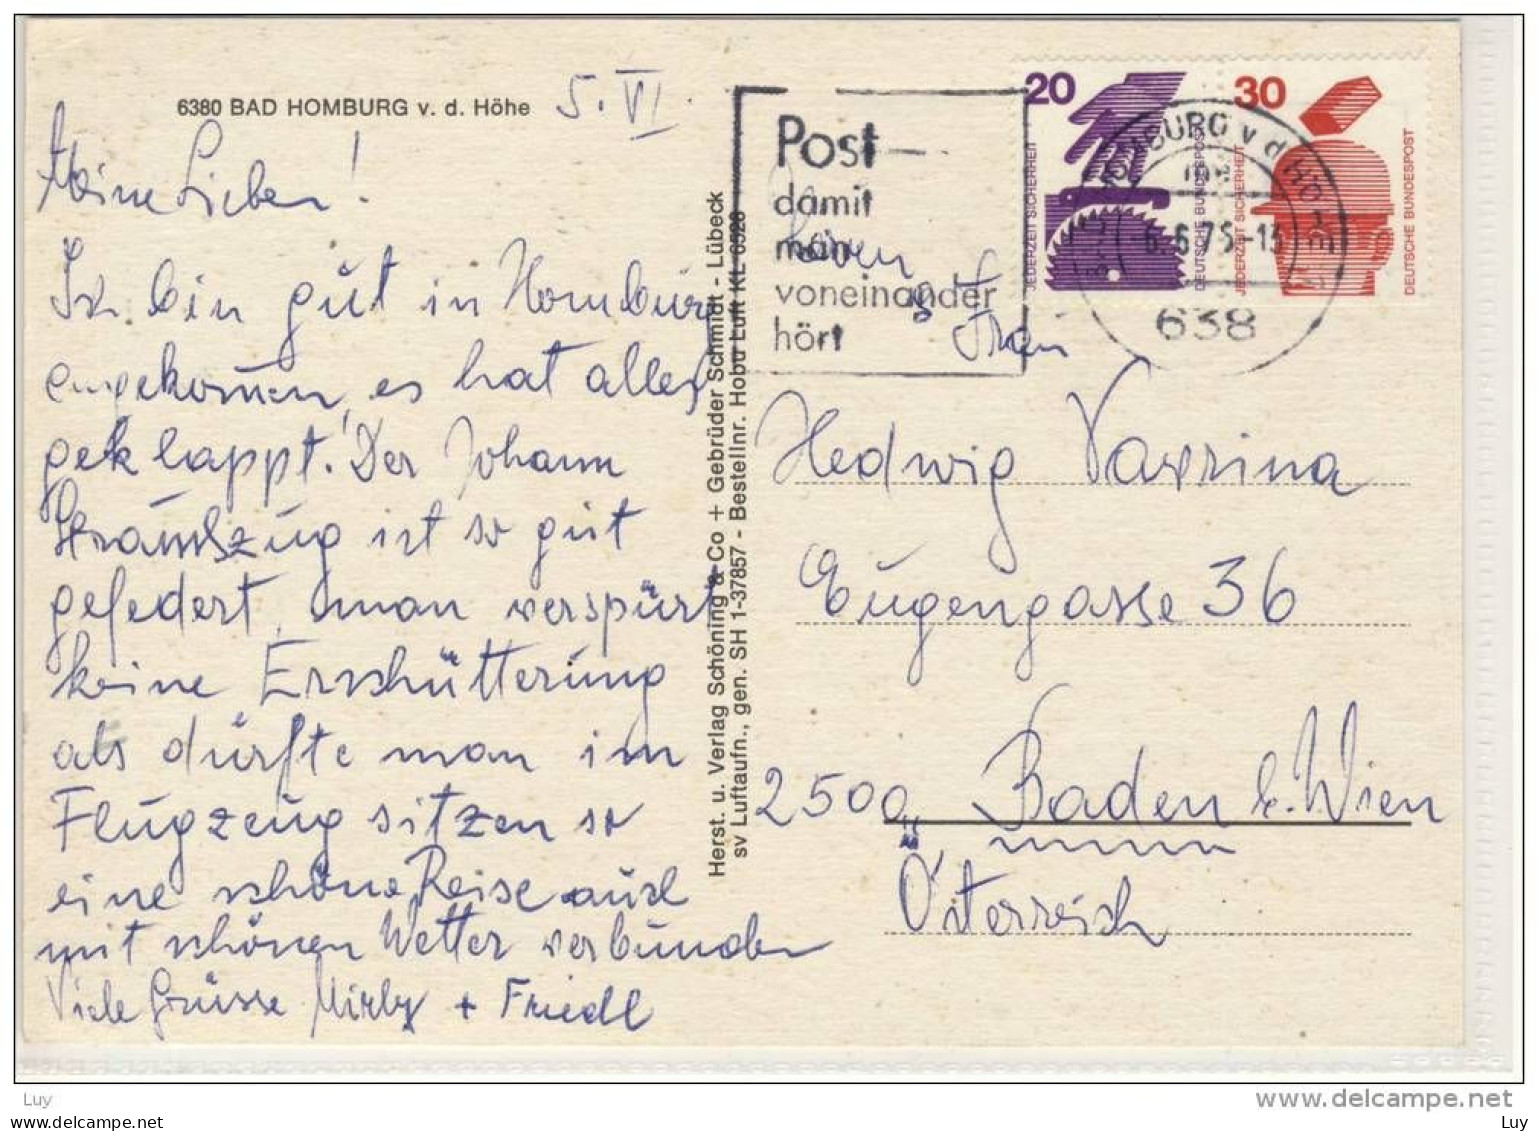 6380 BAD HOMBURG v. d. Höhe
5. VI.
Meine Lieben!
Ich bin gut in Homburg
angekommen, es hat alles
geklappt. Der Johann
Strausszug ist so gut
gefedert, man verspürt
keine Erschütterung
als dürfte man im
Flugzeug sitzen so
eine schöne Reise auch
mit schönen Wetter verbunden
Viele Grüsse Mirly + Friedl
Herst. u. Verlag Schöning & Co + Gebrüder Schmidt - Lübeck
sv Luftaufn., gen. SH 1-37857 - Bestellnr. Hobu Luft KL 6528
Post
damit
man
voneinander
hört
20
JEDERZEIT SICHERHEIT
DEUTSCHE BUNDESPOST
30
JEDERZEIT SICHERHEIT
DEUTSCHE BUNDESPOST
HOMBURG v d HÖHE 1
6.6.75-13
638
Frau
Hedwig Vavrina
Eugengasse 36
2500 Baden b. Wien
Österreich
Luy
www.delcampe.net
Luy
www.delcampe.net
Luy